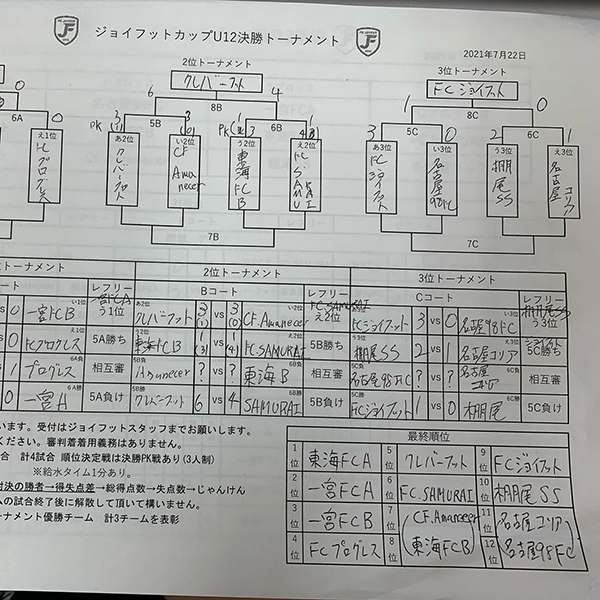 ジョイフットカップU12決勝トーナメント
2021年7月22日
2位トーナメント
クレバーフット
6 4
8B
3位トーナメント
FCジョイフット
1 0
8C
0
6A
0
え1位
FCプログレス
PK 3 (1)
5B
3 (0)
あ2位
クレバーフット
い2位
CF Amanecer
PK
6B
う2位
東海FCB
え2位
FC SAMURAI
7B
3
5C
0
あ3位
FCジョイフット
い3位
名古屋98FC
2
6C
1
う3位
棚尾SS
え3位
名古屋コリア
7C
トーナメント
2位トーナメント
3位トーナメント
コート レフリー
Bコート レフリー
Cコート レフリー
0 一宮FCB い1位 一宮FCA う1位
あ2位 クレバーフット 3 (1) vs 3 (0) CF.Amanecer い2位 FC.SAMURAI え2位
FCジョイフット 3 vs 0 名古屋98FC い3位 棚尾SS う3位
0 FCプログレス え1位 5A勝ち
う2位 東海FCB 1 (3) vs 1 (4) FC.SAMURAI え2位 5B勝ち
う3位 棚尾SS 2 vs 1 名古屋コリア え3位 5C勝ち
1 プログレス 6A負 相互審
5B負 Amanecer ? vs ? 東海B 6B負 相互審
5C負 名古屋98FC ? vs ? 名古屋コリア 6C負 相互審
0 一宮A 6A勝 5A負け
5B勝 クレバーフット 6 vs 4 SAMURAI 6B勝 5B負け
5C勝 FCジョイフット 1 vs 0 棚尾 6C勝 5C負け
います。受付はジョイフットスタッフまでお願いします。
ください。審判着着用義務はありません。
合 計4試合 順位決定戦は決勝PK戦あり(3人制)
※給水タイム1分あり。
対決の勝者→得失点差→総得点数→失点数→じゃんけん
ムの試合終了後に解散して頂いて構いません。
ーナメント優勝チーム 計3チームを表彰
最終順位
1位 東海FCA 5位 クレバーフット 9位 FCジョイフット
2位 一宮FCA 6位 FC.SAMURAI 10位 棚尾SS
3位 一宮FCB 7位 CF.Amanecer 11位 名古屋コリア
4位 FCプログレス 8位 東海FCB 12位 名古屋98FC